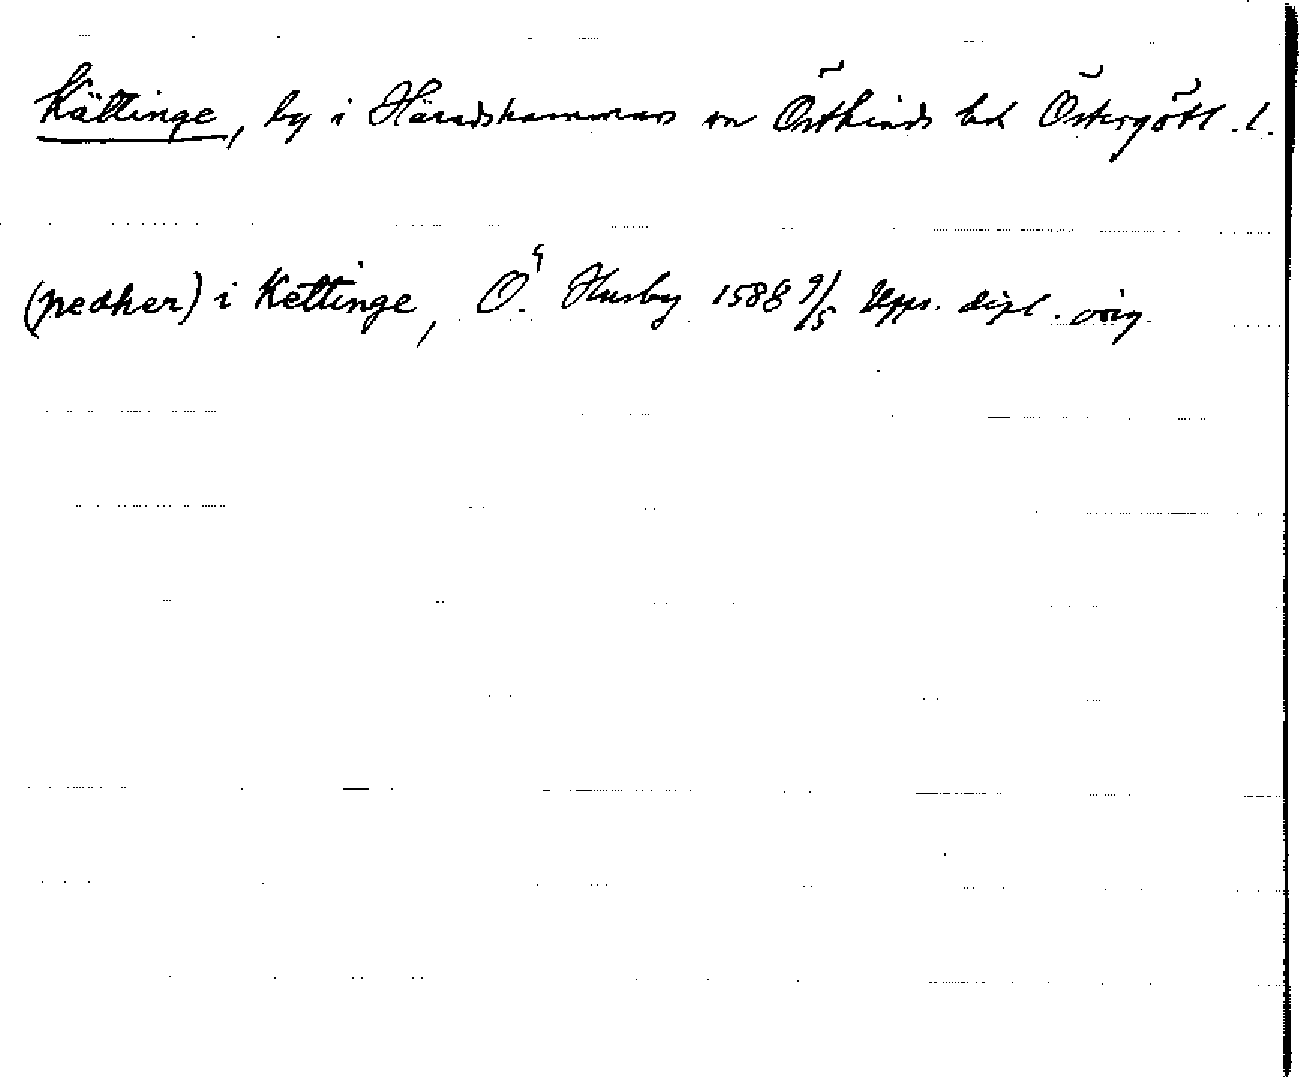 Kättinge, by i Häradshammars sn Östkinds hd Östergötl. l.
(pedher) i Kettinge, Ö. Husby 1588 9/5 Upps. dipl. orig